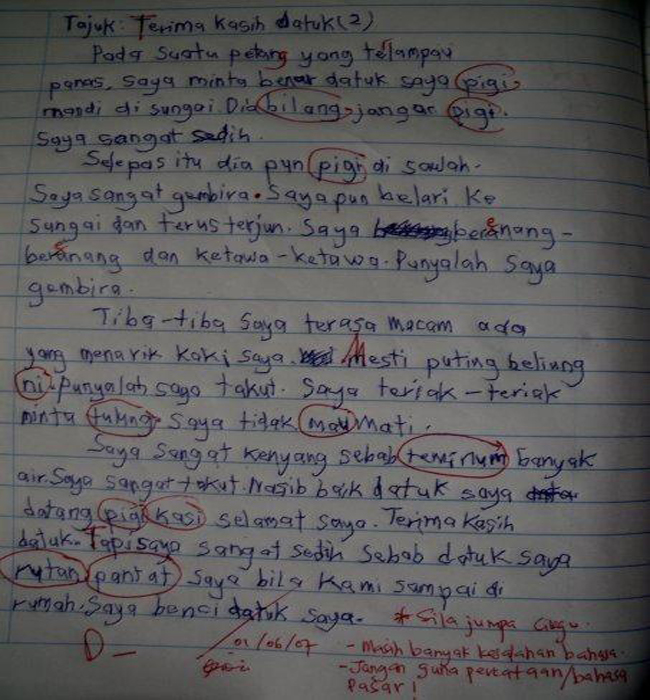 Tajuk: Terima Kasih datuk (2)
Pada suatu petang yang telampau
panas, saya minta benar datuk saya pigi
mandi di sungai. Dia bilang, jangan pigi.
Saya sangat sedih.
Selepas itu dia pun pigi di sawah.
Saya sangat gembira. Saya pun belari ke
sungai dan terus terjun. Saya berenang-
berenang dan ketawa-ketawa. Punyalah saya
gembira.
Tiba-tiba saya terasa macam ada
yang menarik kaki saya. Mesti puting beliung
ni. Punyalah saya takut. Saya teriak-teriak
minta tulung. Saya tidak mau mati.
Saya sangat kenyang sebab teminum banyak
air. Saya sangat takut. Nasib baik datuk saya
datang pigi kasi selamat saya. Terima kasih
datuk. Tapi saya sangat sedih sebab datuk saya
rutan pantat saya bila kami sampai di
rumah. Saya benci datuk saya. * Sila jumpa cikgu.
D- 01/06/07 - Masih banyak kesalahan bahasa.
- Jangan guna percataan/bahasa
pasar!